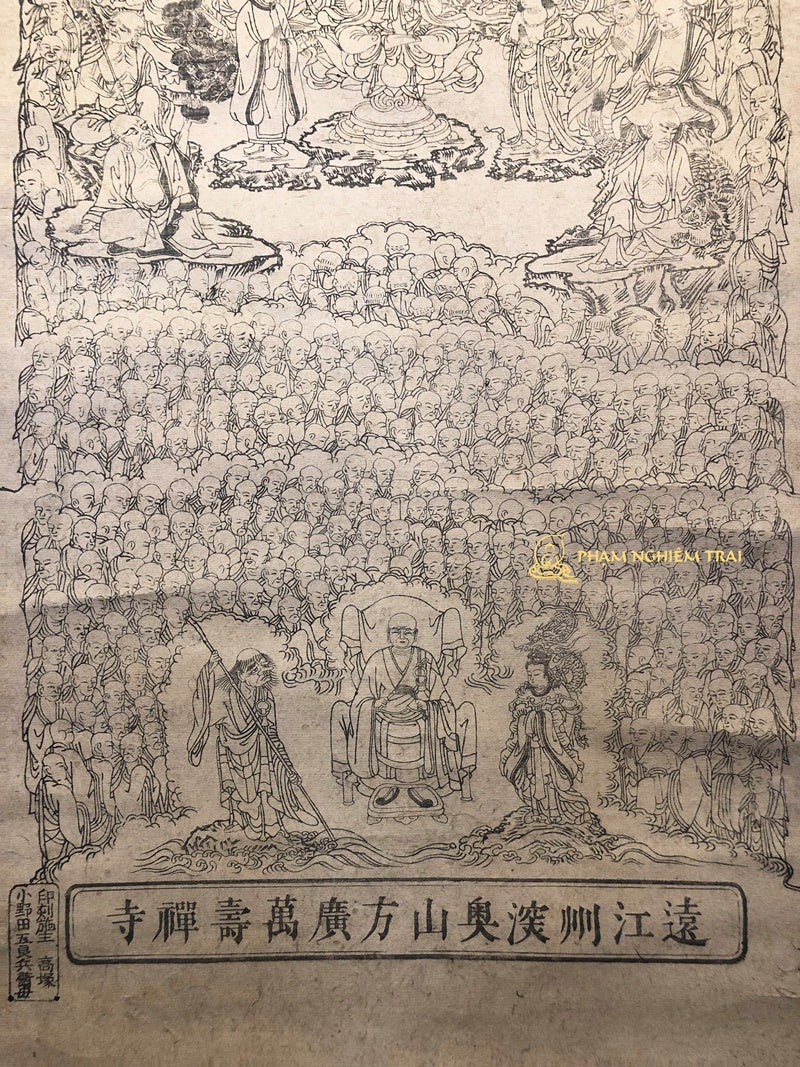 PHẠM NGHIÊM TRAI
遠江州深奥山方廣萬壽禪寺
印刻施主 高塚
小野田五良兵衛母